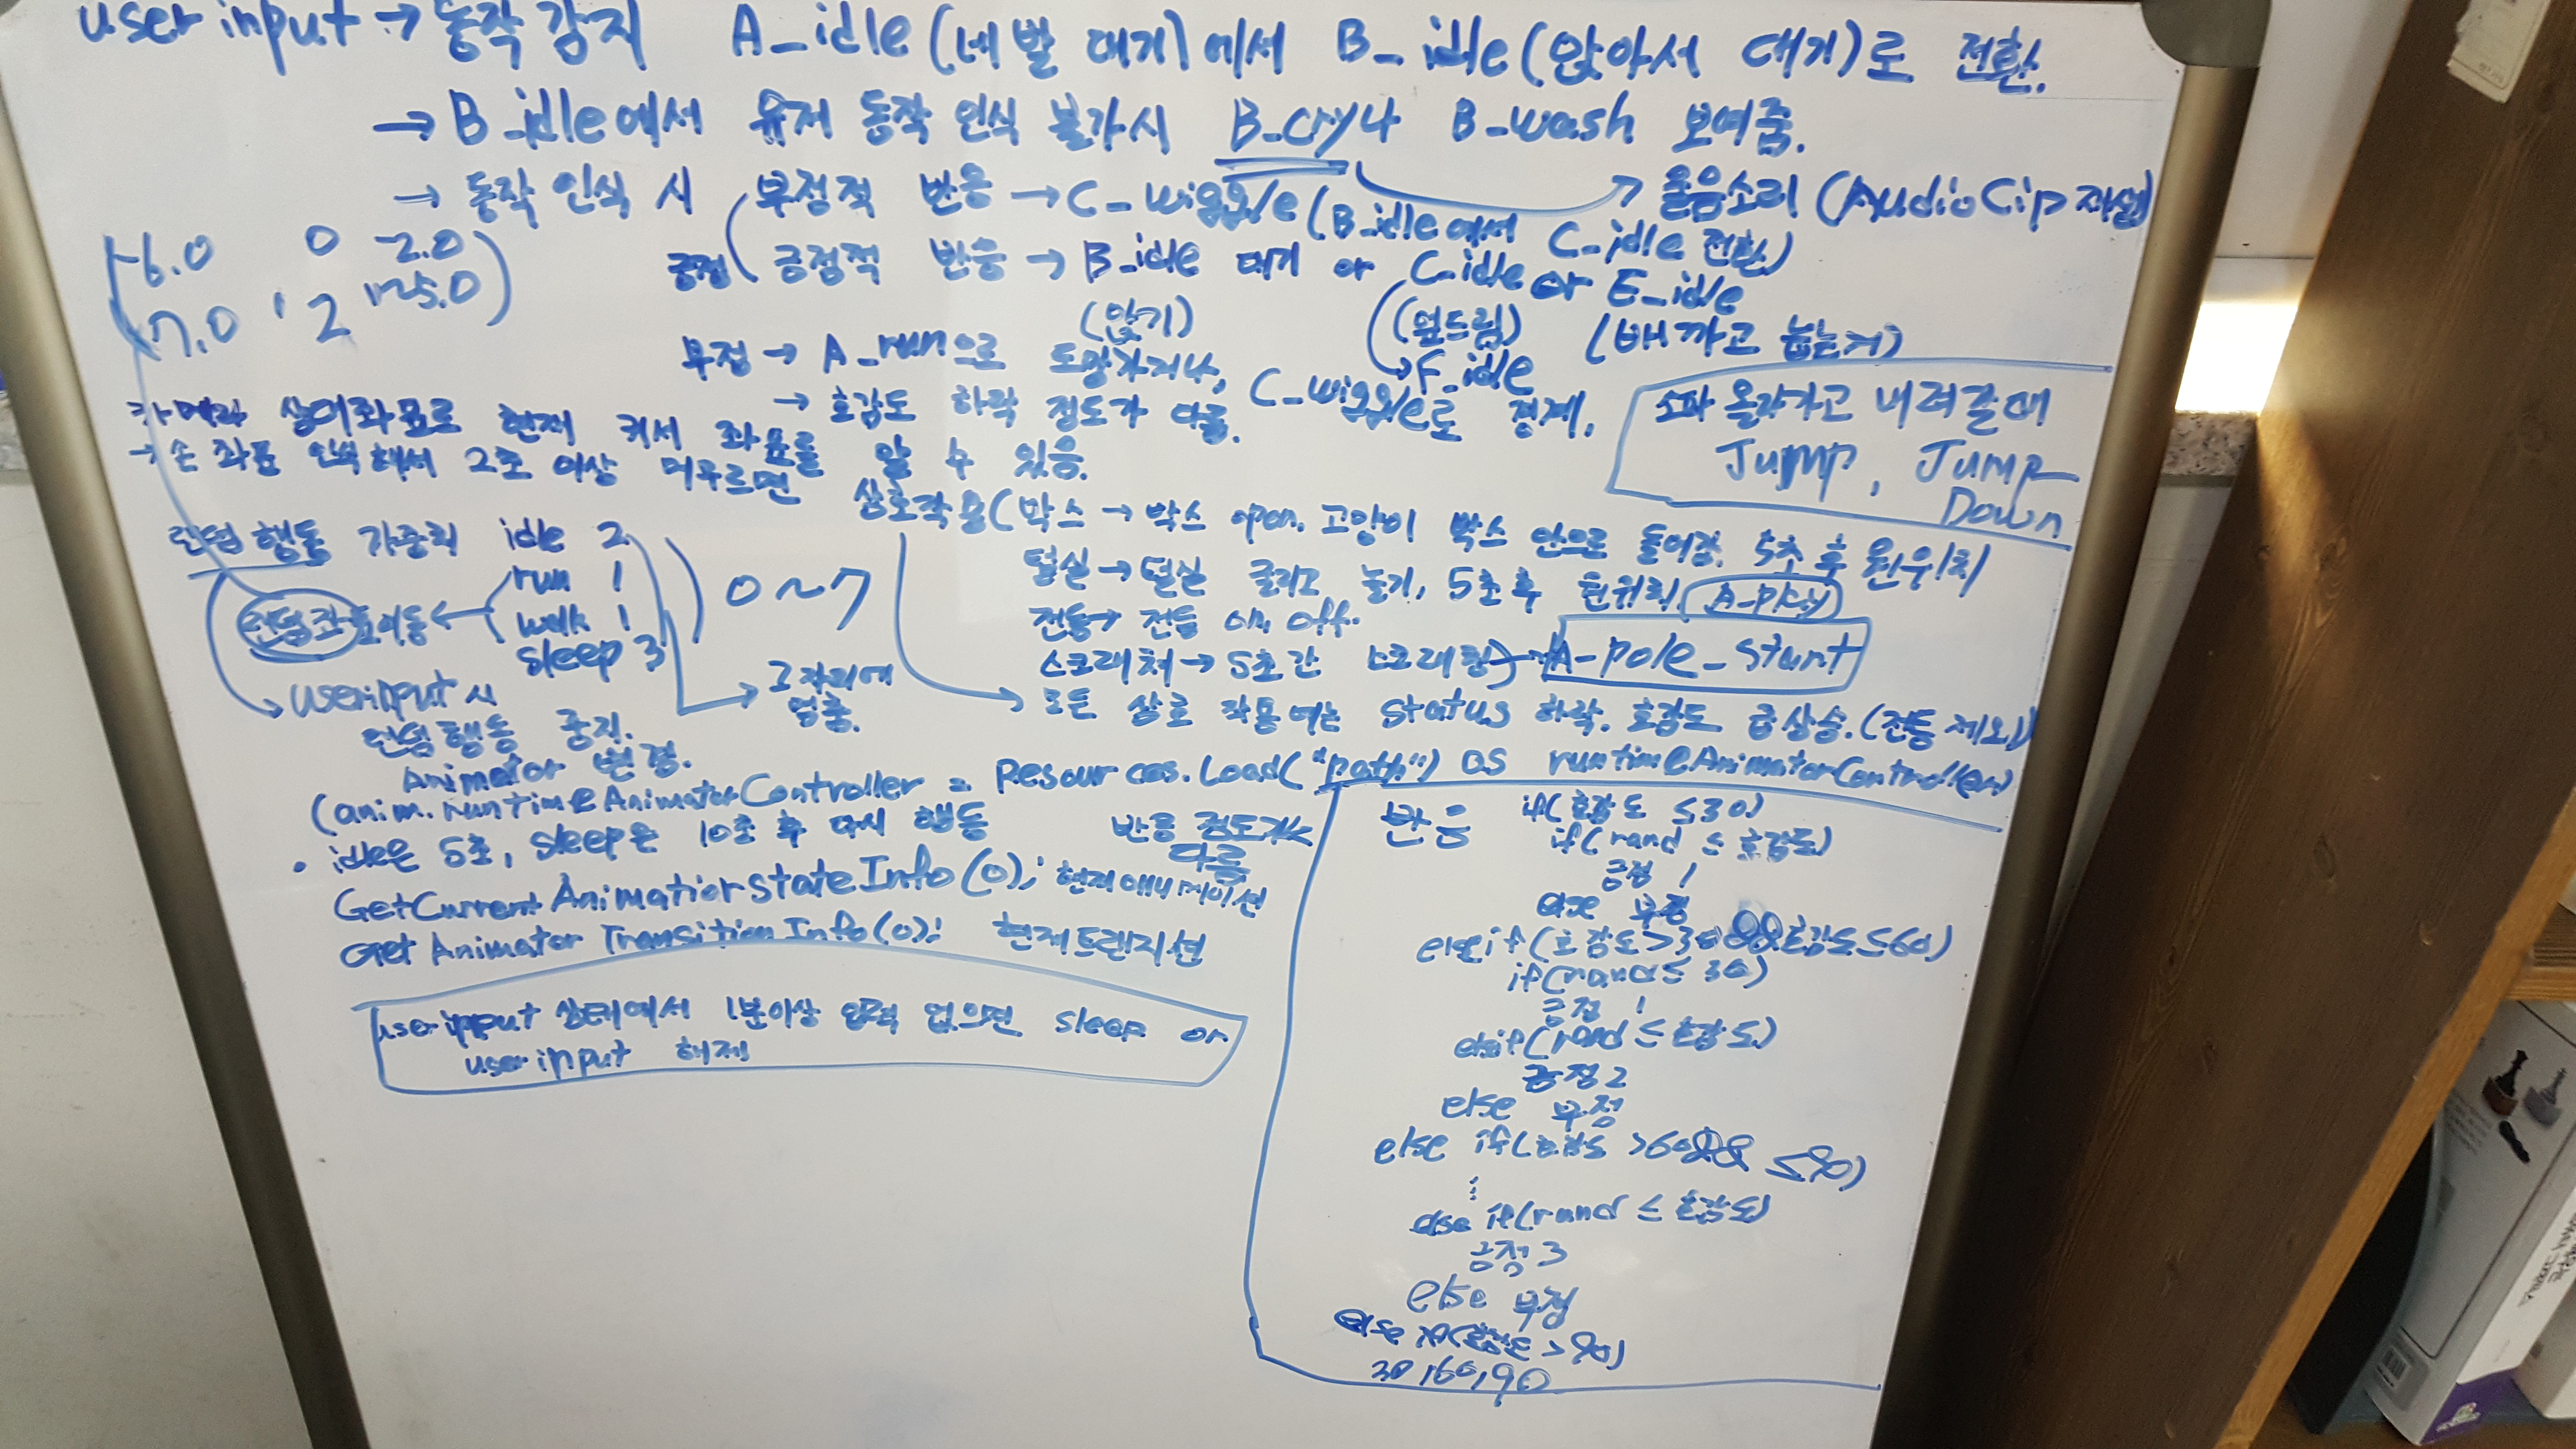 user input → 동작 감지 A_idle (네발 대기)에서 B_idle (앉아서 대기)로 전환.
→ B_idle에서 유저 동작 인식 불가시 B_cry나 B_wash 보여줌.
→ 동작 인식 시 부정적 반응 → C_wiggle (B_idle에서 C_idle 전환)
울음소리 (AudioCip 재생)
긍정 긍정적 반응 → B_idle 대기 or C_idle or E_idle
(앉기) (엎드림) (배까고 눕는거)
→ F_idle
부정 → A_run으로 도망가거나, C_wiggle로 경계.
→ 호감도 하락 정도가 다름.
-6.0 0 -2.0
7.0 2
소파 올라가고 내려갈 때
Jump, Jump
Down
카메라 상대좌표로 현재 커서 좌표를 알 수 있음.
→ 손 좌표 인식해서 2초 이상 머무르면
상호작용 (박스 → 박스 open. 고양이 박스 안으로 들어감. 5초 후 원위치
털실 → 털실 굴리고 놀기, 5초 후 원위치 A-play
전등 → 전등 on, off.
스크래쳐 → 5초간 스크래칭) → A-pole_start
→ 모든 상호 작용에는 status 하락. 호감도 급상승. (전등 제외)
랜덤 행동 가중치 idle 2
run 1
walk 1
sleep 3
0 ~ 7
랜덤좌표이동 ←
→ 그 자리에
멈춤.
userinput 시
랜덤행동 중지.
Animator 변경.
(anim.runtimeAnimatorController = Resources.Load("path") as runtimeAnimatorController)
• idle은 5초, sleep은 10초 후 다시 행동
반응 정도가
다름
GetCurrentAnimatiorstateInfo(0); 현재 애니메이션
Get Animator TransitionInfo(0); 현재 트랜지션
userinput 상태에서 1분이상 입력 없으면 sleep or
userinput 해제
반응 if(호감도 ≤30)
if(rand ≤ 호감도)
긍정 1
else 부정
else if(호감도>30 && 호감도≤60)
if(rand ≤ 30)
긍정 1
else if(rand ≤ 호감도)
긍정2
else 부정
else if(호감도 >60&& ≤90)
⋮
else if(rand ≤ 호감도)
긍정3
else 부정
else if(호감도 >90)
30, 60, 90